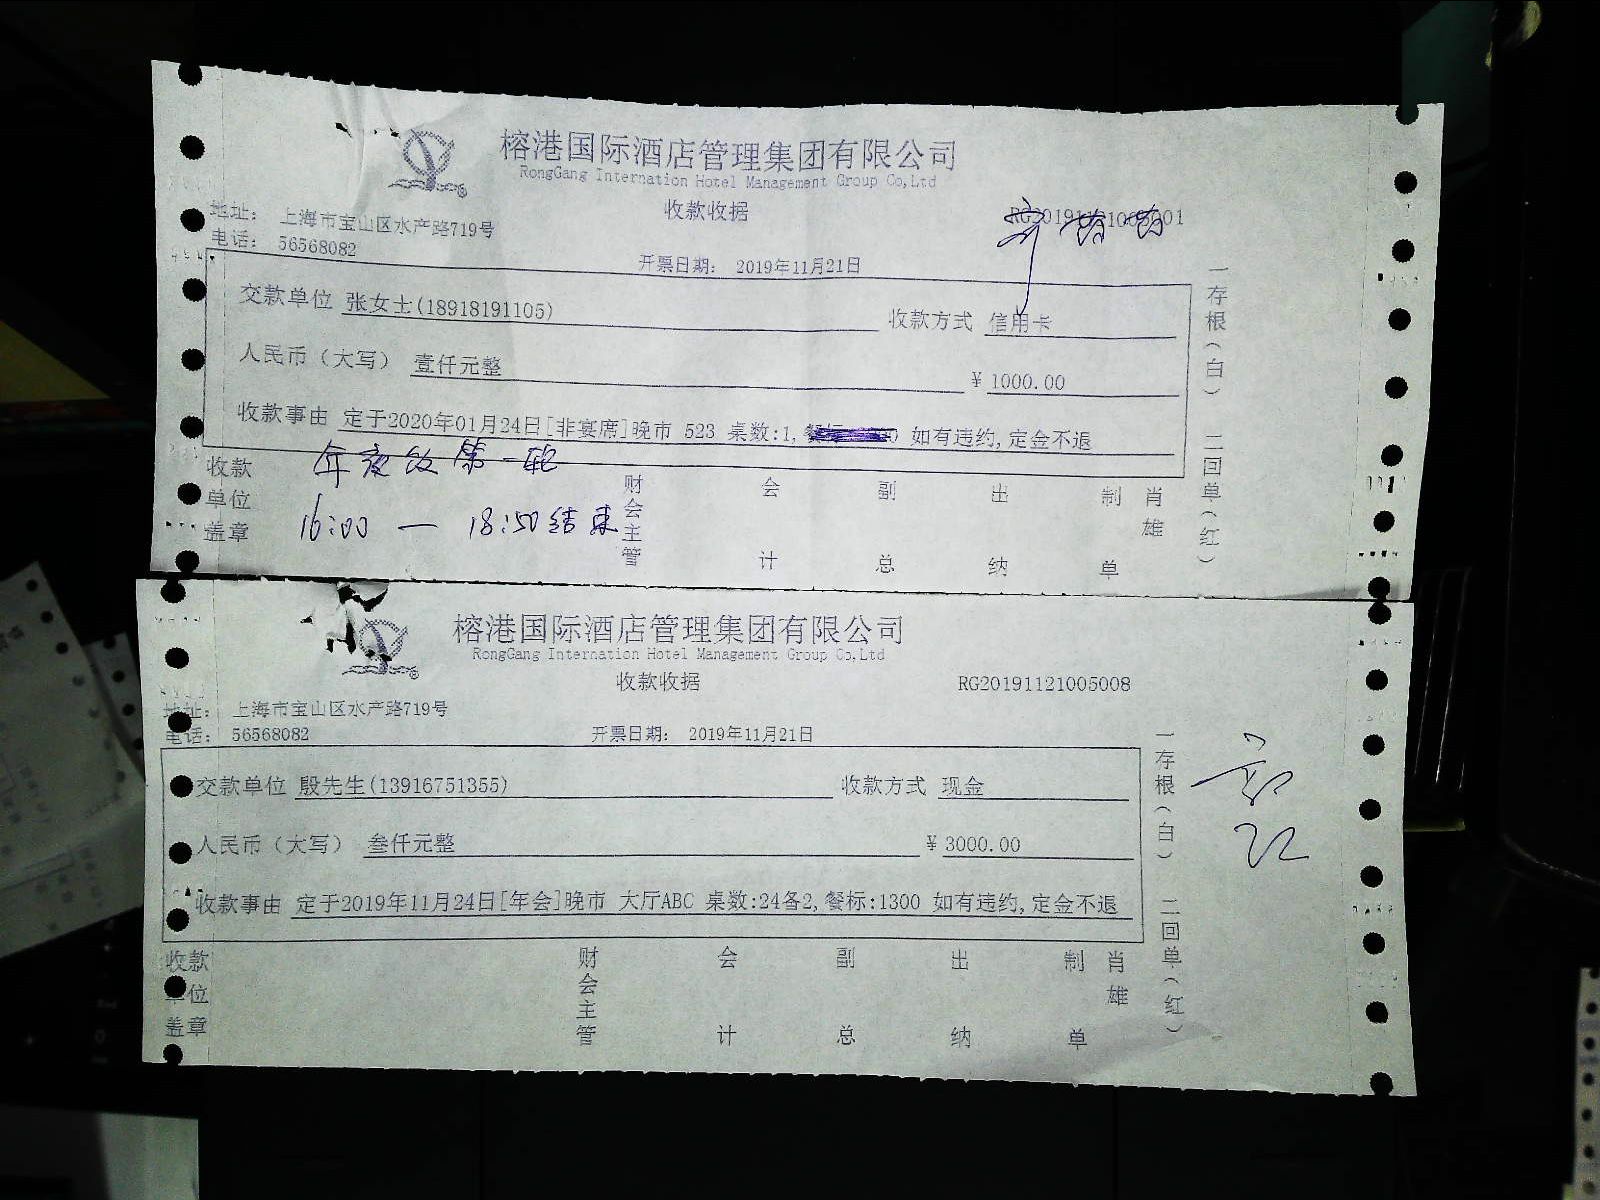 榕港国际酒店管理集团有限公司
RongGang Internation Hotel Management Group Co,Ltd
收款收据
地址： 上海市宝山区水产路719号
电话： 56568082
开票日期： 2019年11月21日
交款单位 张女士(18918191105) 收款方式 信用卡
人民币（大写） 壹仟元整 ¥ 1000.00
收款事由 定于2020年01月24日[非宴席]晚市 523 桌数:1, 如有违约,定金不退
年夜饭第一轮
16:00 — 18:50结束
收款单位盖章 财会主管 会计 副总 出纳 制单 肖雄
一存根（白） 二回单（红）
榕港国际酒店管理集团有限公司
RongGang Internation Hotel Management Group Co,Ltd
收款收据 RG20191121005008
地址： 上海市宝山区水产路719号
电话： 56568082
开票日期： 2019年11月21日
交款单位 殷先生(13916751355) 收款方式 现金
人民币（大写） 叁仟元整 ¥ 3000.00
收款事由 定于2019年11月24日[年会]晚市 大厅ABC 桌数:24备2,餐标:1300 如有违约,定金不退
收款单位盖章 财会主管 会计 副总 出纳 制单 肖雄
一存根（白） 二回单（红）